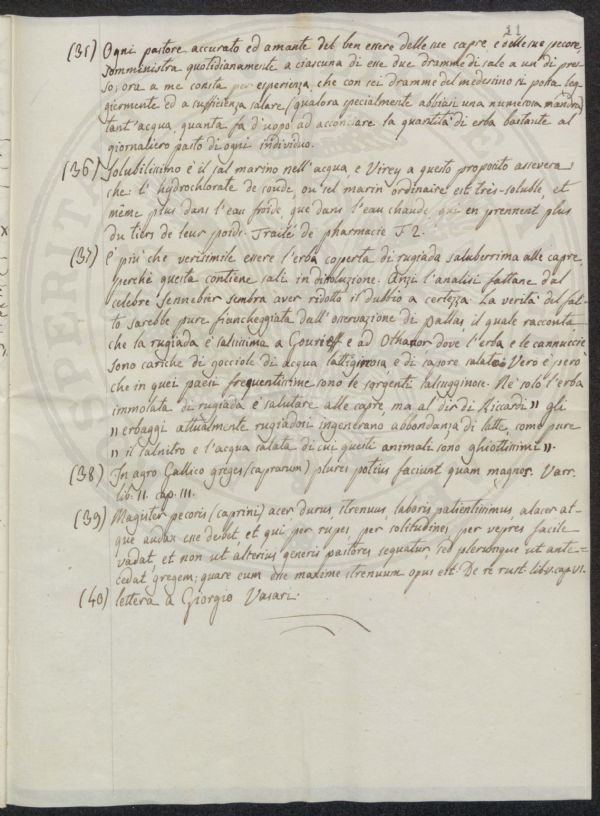 21
(35) Ogni pastore accurato ed amante del ben essere delle sue capre, e delle sue pecore,
somministra quotidianamente a ciascuna di esse due dramme di sale a un di pres-
so; ora a me consta per esperienza, che con sei dramme del medesimo si possa leg-
giermente ed a sufficienza salare (qualora specialmente abbiasi una numerosa mandra)
tant'acqua, quanta fa d'uopo ad acconciare la quantità di erba bastante al
giornaliero pasto di ogni individuo.
(36) Solubilissimo è il sal marino nell'acqua, e Virey a questo proposito assevera
che: l'hydrochlorate de soude, ou sel marin ordinaire est très-soluble, et
même plus dans l'eau froide, que dans l'eau chaude, qui en prennent plus
du tiers de leur poids. Traité de pharmacie T. 2.
(37) È più che verisimile essere l'erba coperta di rugiada saluberrima alle capre,
perchè questa contiene sali in dissoluzione. Anzi l'analisi fattane dal
celebre Sennebier sembra aver ridotto il dubbio a certezza. La verità del fat-
to sarebbe pure fiancheggiata dall'osservazione di Pallas, il quale racconta
che la rugiada è salsissima a Gourieff, e ad Othanor dove l'erba e le cannuccie
sono cariche di gocciole di acqua lattiginosa, e di sapore salato. Vero è però
che in quei paesi frequentissime sono le sorgenti salsugginose. Nè solo l'erba
immolata di rugiada è salutare alle capre, ma al dir di Ricardi " gli
" erbaggi attualmente rugiadosi ingenerano abbondanza di latte, come pure
" il salnitro e l'acqua salata di cui questi animali sono ghiottissimi ".
(38) In agro Gallico greges (caprarum) plures potius faciunt quam magnos. Varr.
lib. II. cap. III.
(39) Magister pecoris (caprini) acer durus strenuus, laboris patientissimus, alacer at-
que audax esse debet, et qui per rupes, per solitudines per vepres facile
vadat, et non ut alterius generis pastores sequatur, sed plerumque ut ante=
cedat gregem; quare eum esse maxime strenuum opus est. De re rust. lib. V. cap. VI.
(40) lettera a Giorgio Vasari.